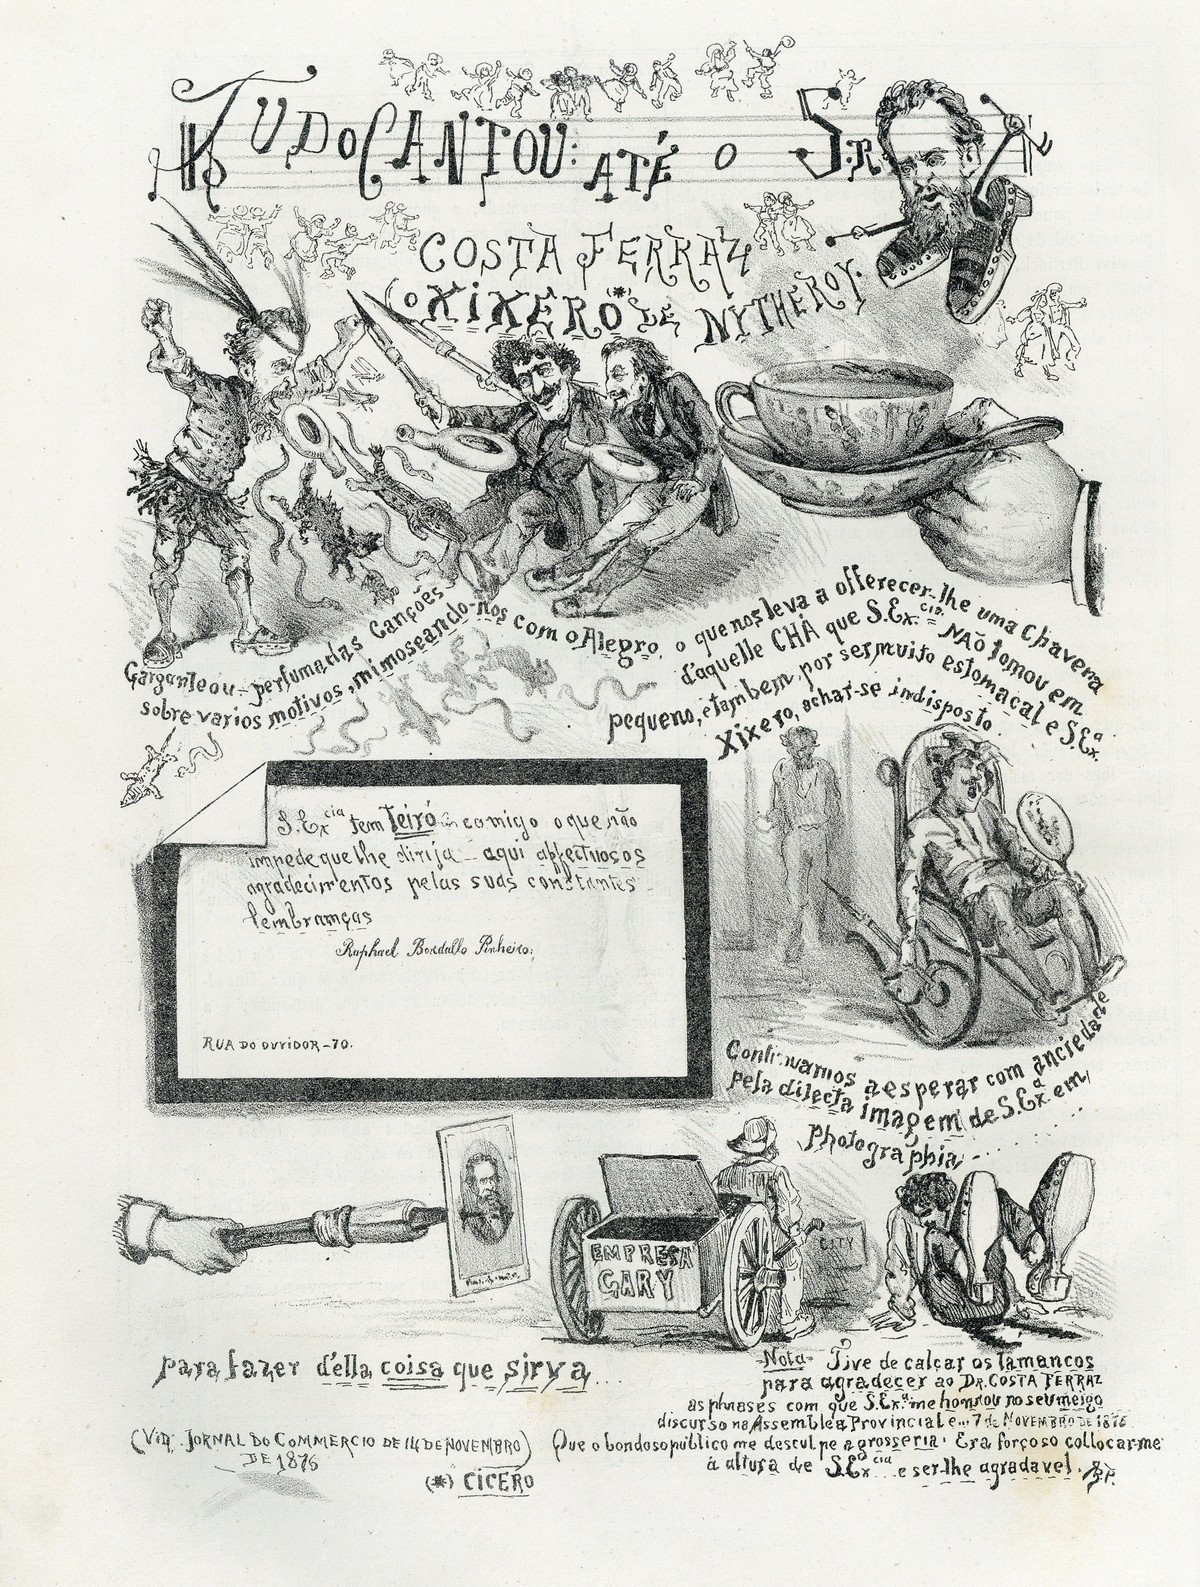 TUDO CANTOU: ATÉ O SR.
COSTA FERRAZ
(O XIXERO (*) DE NYTHEROY.
Garganteou perfumadas Canções
sobre varios motivos, mimoseando-nos com o Alegro,
o que nos leva a offerecer-lhe uma Chavena
d'aquelle CHÁ que S. Ex.cia NÃO tomou em
pequeno, e tambem por ser muito estomacal e S. Ex.a
Xixero, achar-se indisposto.
S. Excia tem Teiró comigo o que não
impede que lhe dirija aqui affectuosos
agradecimentos pelas suas constantes
lembranças
Raphael Bordallo Pinheiro.
RUA DO OUVIDOR-70.
Continuamos a esperar com anciedade
pela dilecta imagem de S. Ex.a em
photographia,......
EMPREZA
GARY
CITY
para fazer d'ella coisa que sirva...
(VID. JORNAL DO COMMERCIO DE 14 DE NOVEMBRO)
DE 1876
(*) CICERO
Nota- Tive de calçar os tamancos
para agradecer ao DR. COSTA FERRAZ
as phrases com que S. Ex.a me honrou no seu meigo
discurso na Assemblea Provincial em 7 de NOVEMBRO DE 1876
Que o bondoso público me desculpe a grosseria. Era forçoso collocar-me
á altura de S. Excia... e ser-lhe agradavel.